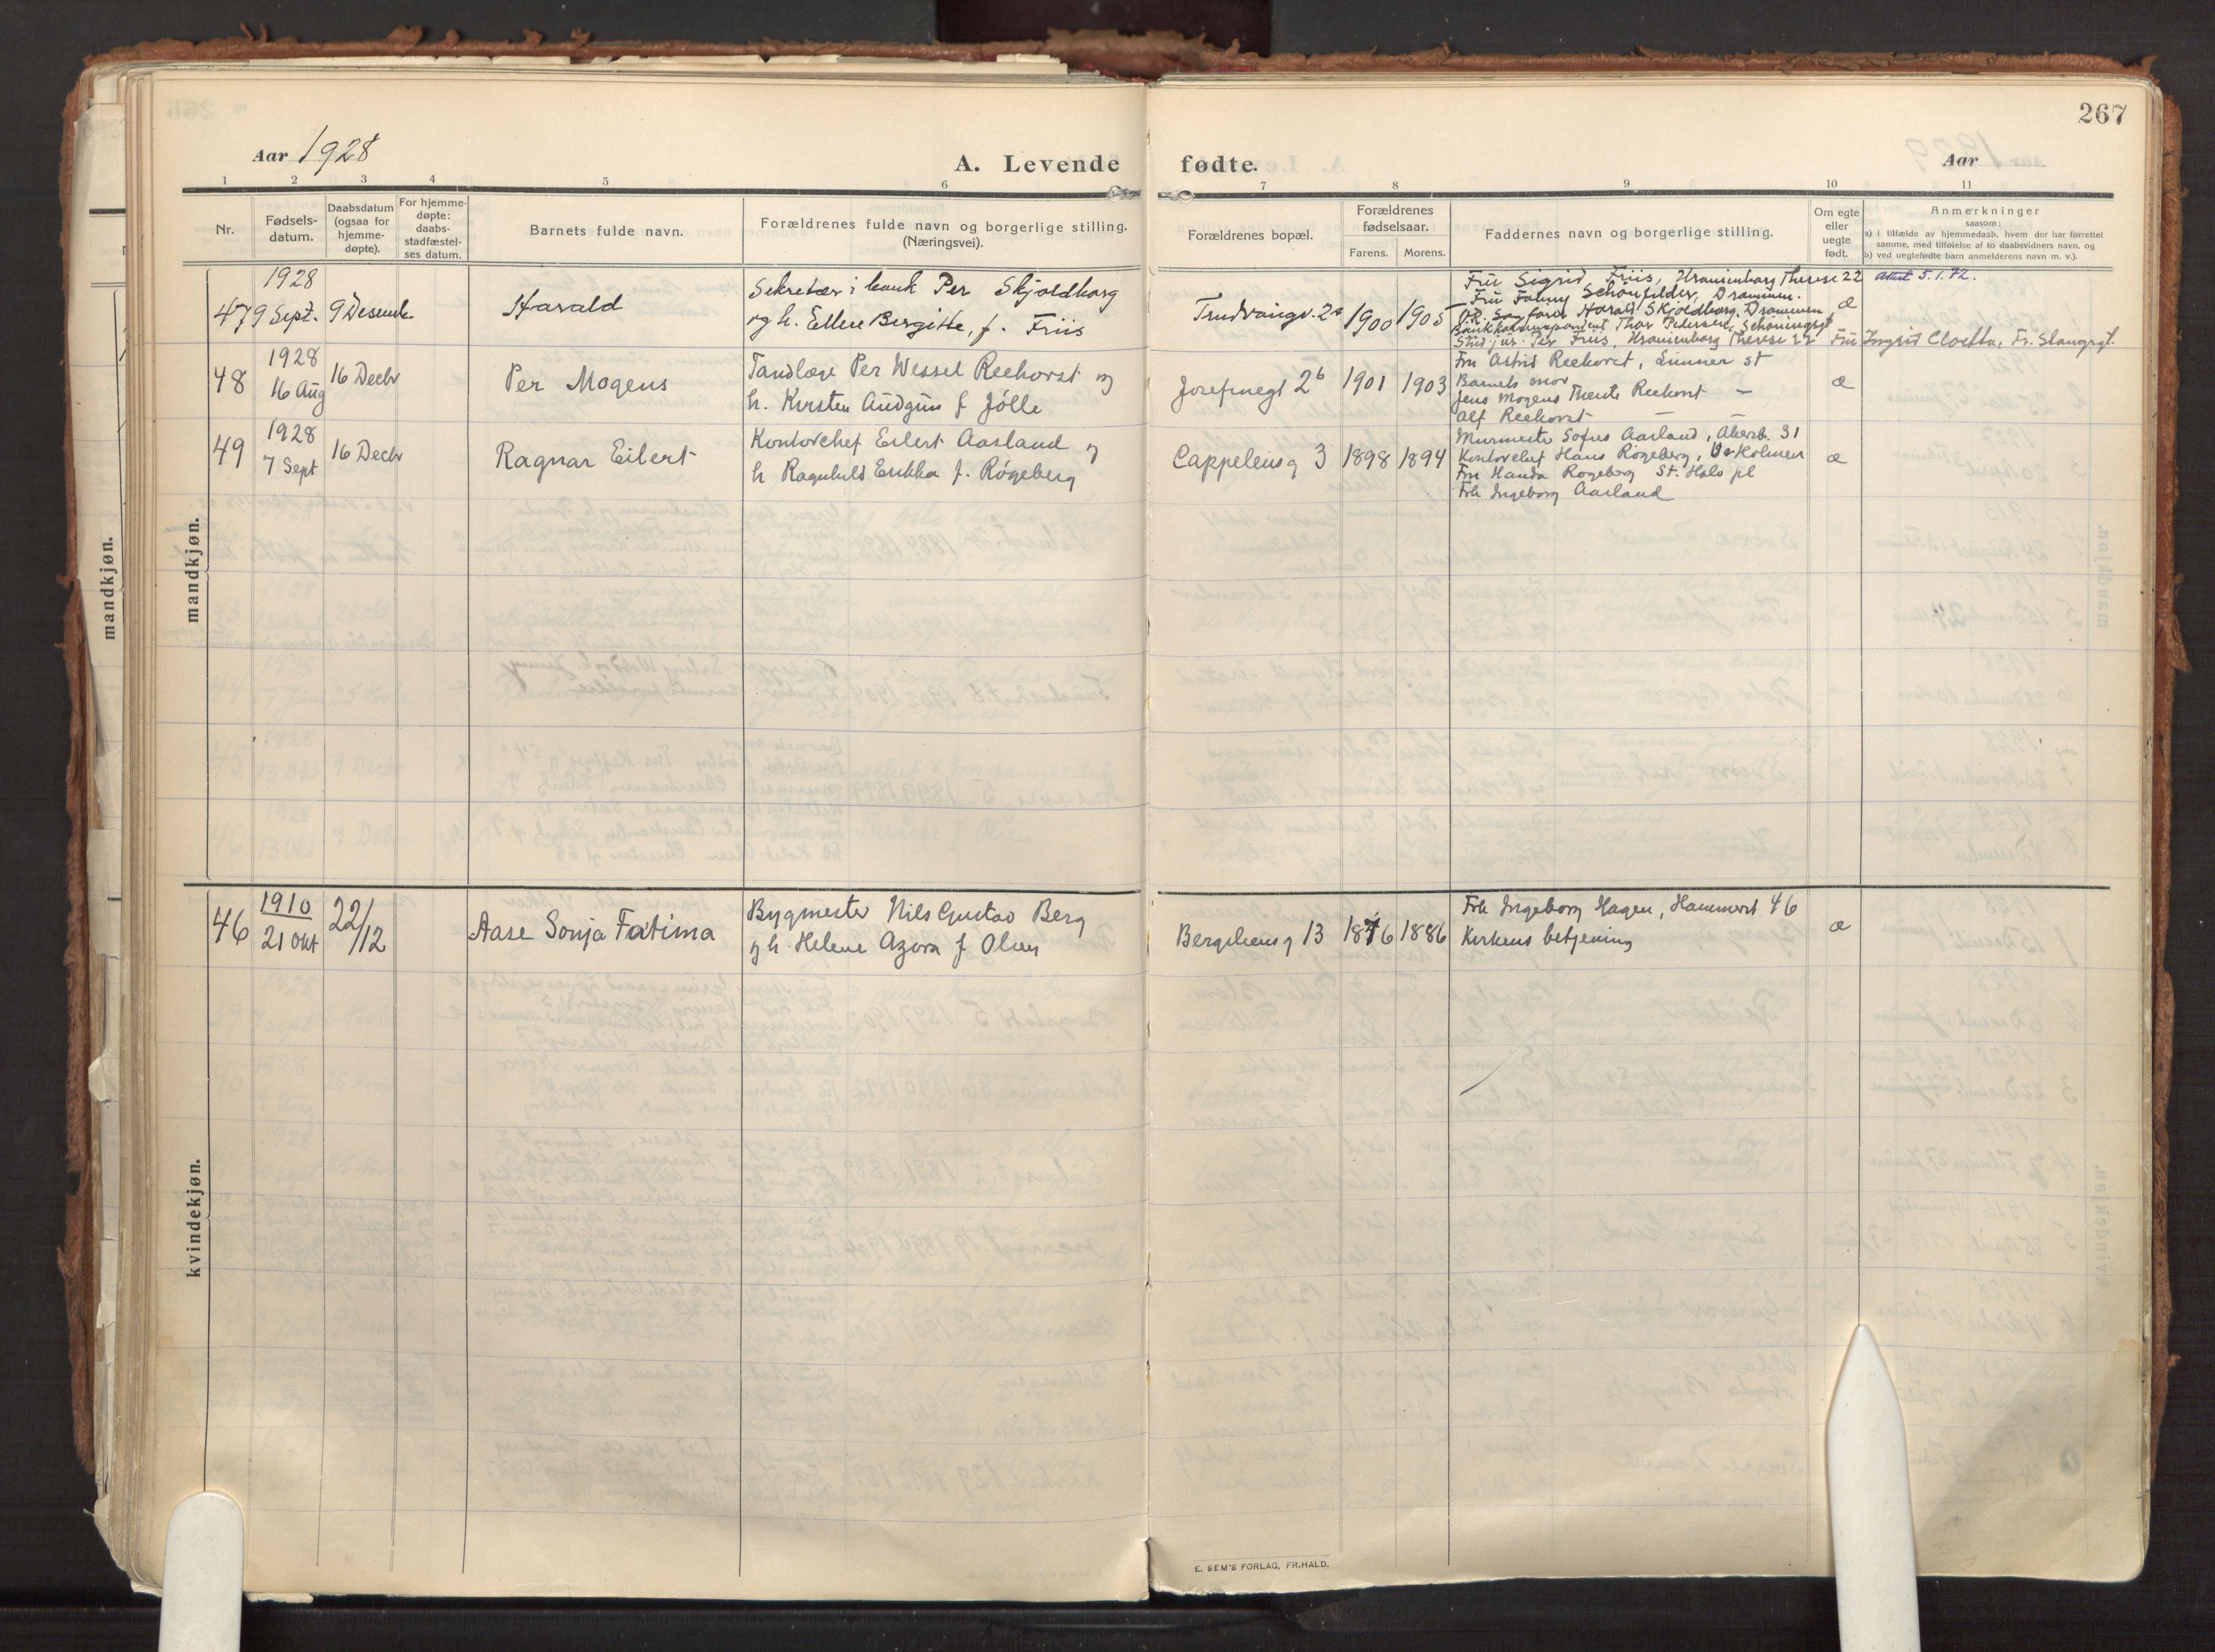 267
Aar 1928
A. Levende fødte.
Aar
1 2 3 4 5 6 7 8 9 10 11
Nr.
Fødsels-
datum.
Daabsdatum
(ogsaa for
hjemme-
døpte).
For hjemme-
døpte:
daabs-
stadfæstel-
ses datum.
Barnets fulde navn.
Forældrenes fulde navn og borgerlige stilling.
(Næringsvei).
Forældrenes bopæl.
Forældrenes
fødselsaar.
Farens. Morens.
Faddernes navn og borgerlige stilling.
Om egte
eller
uegte
født.
Anmerkninger
saasom:
a) i tilfælde av hjemmedaab, hvem der har forrettet
samme, med tilføielse af to daabsvidners navn, og
b) ved uegtefødte barn anmelderens navn m. v.).
mandkjøn.
mandkjøn.
47
1928
9 Sept.
9 Desemb.
Harald
Sekretær i bank Per Skjoldborg
og h. Ellen Birgitte, f. Friis
Trudvangv. 2a
1900 1905
Fru Sigrid Friis, Uranienborg Therese 22
Fru Fanny Schönfelder, Drammen.
O.R. Sagfører Harald Skjoldborg, Drammen
Bankkorrespondent Thor Pedersen, Schøningsgt
Stud. jur. Per Friis, Uranienborg Therese 22 Fru Ingrid Cloetta, Fr. Stangsgt.
æ
Attest 5.1.72.
48
1928
16 Aug
16 Decbr
Per Mogens
Tandlæge Per Wessel Reehorst og
h. Kirsten Audgun f Jølle
Josefinegt 2b
1901 1903
Fru Astrid Reehorst, Lunner st
Barnets mor
Jens Mogens Reehorst —
Alf Reehorst — —
æ
49
1928
7 Sept
16 Decbr
Ragnar Eilert
Kontorchef Eilert Aasland og
h Ragnhild Erikka f. Røgeberg
Cappelensg 3
1898 1894
Murmester Sofus Aasland, Akersb. 31
Kontorchef Hans Rogeberg, V. Holmen
Fru Handa Rogeberg St. Hals pl
Frk Ingeborg Aasland
æ
kvindekjøn.
46
1910
21 Okt
22/12
Aase Sonja Fatima
Bygmester Nils Gustav Berg
og h. Helene Azora f Olsen
Bergliensg 13
1876 1886
Frk Ingeborg Hagen, Hammerst 46
Kirkens betjening
æ
E. SEM'S FORLAG, FR.HALD.